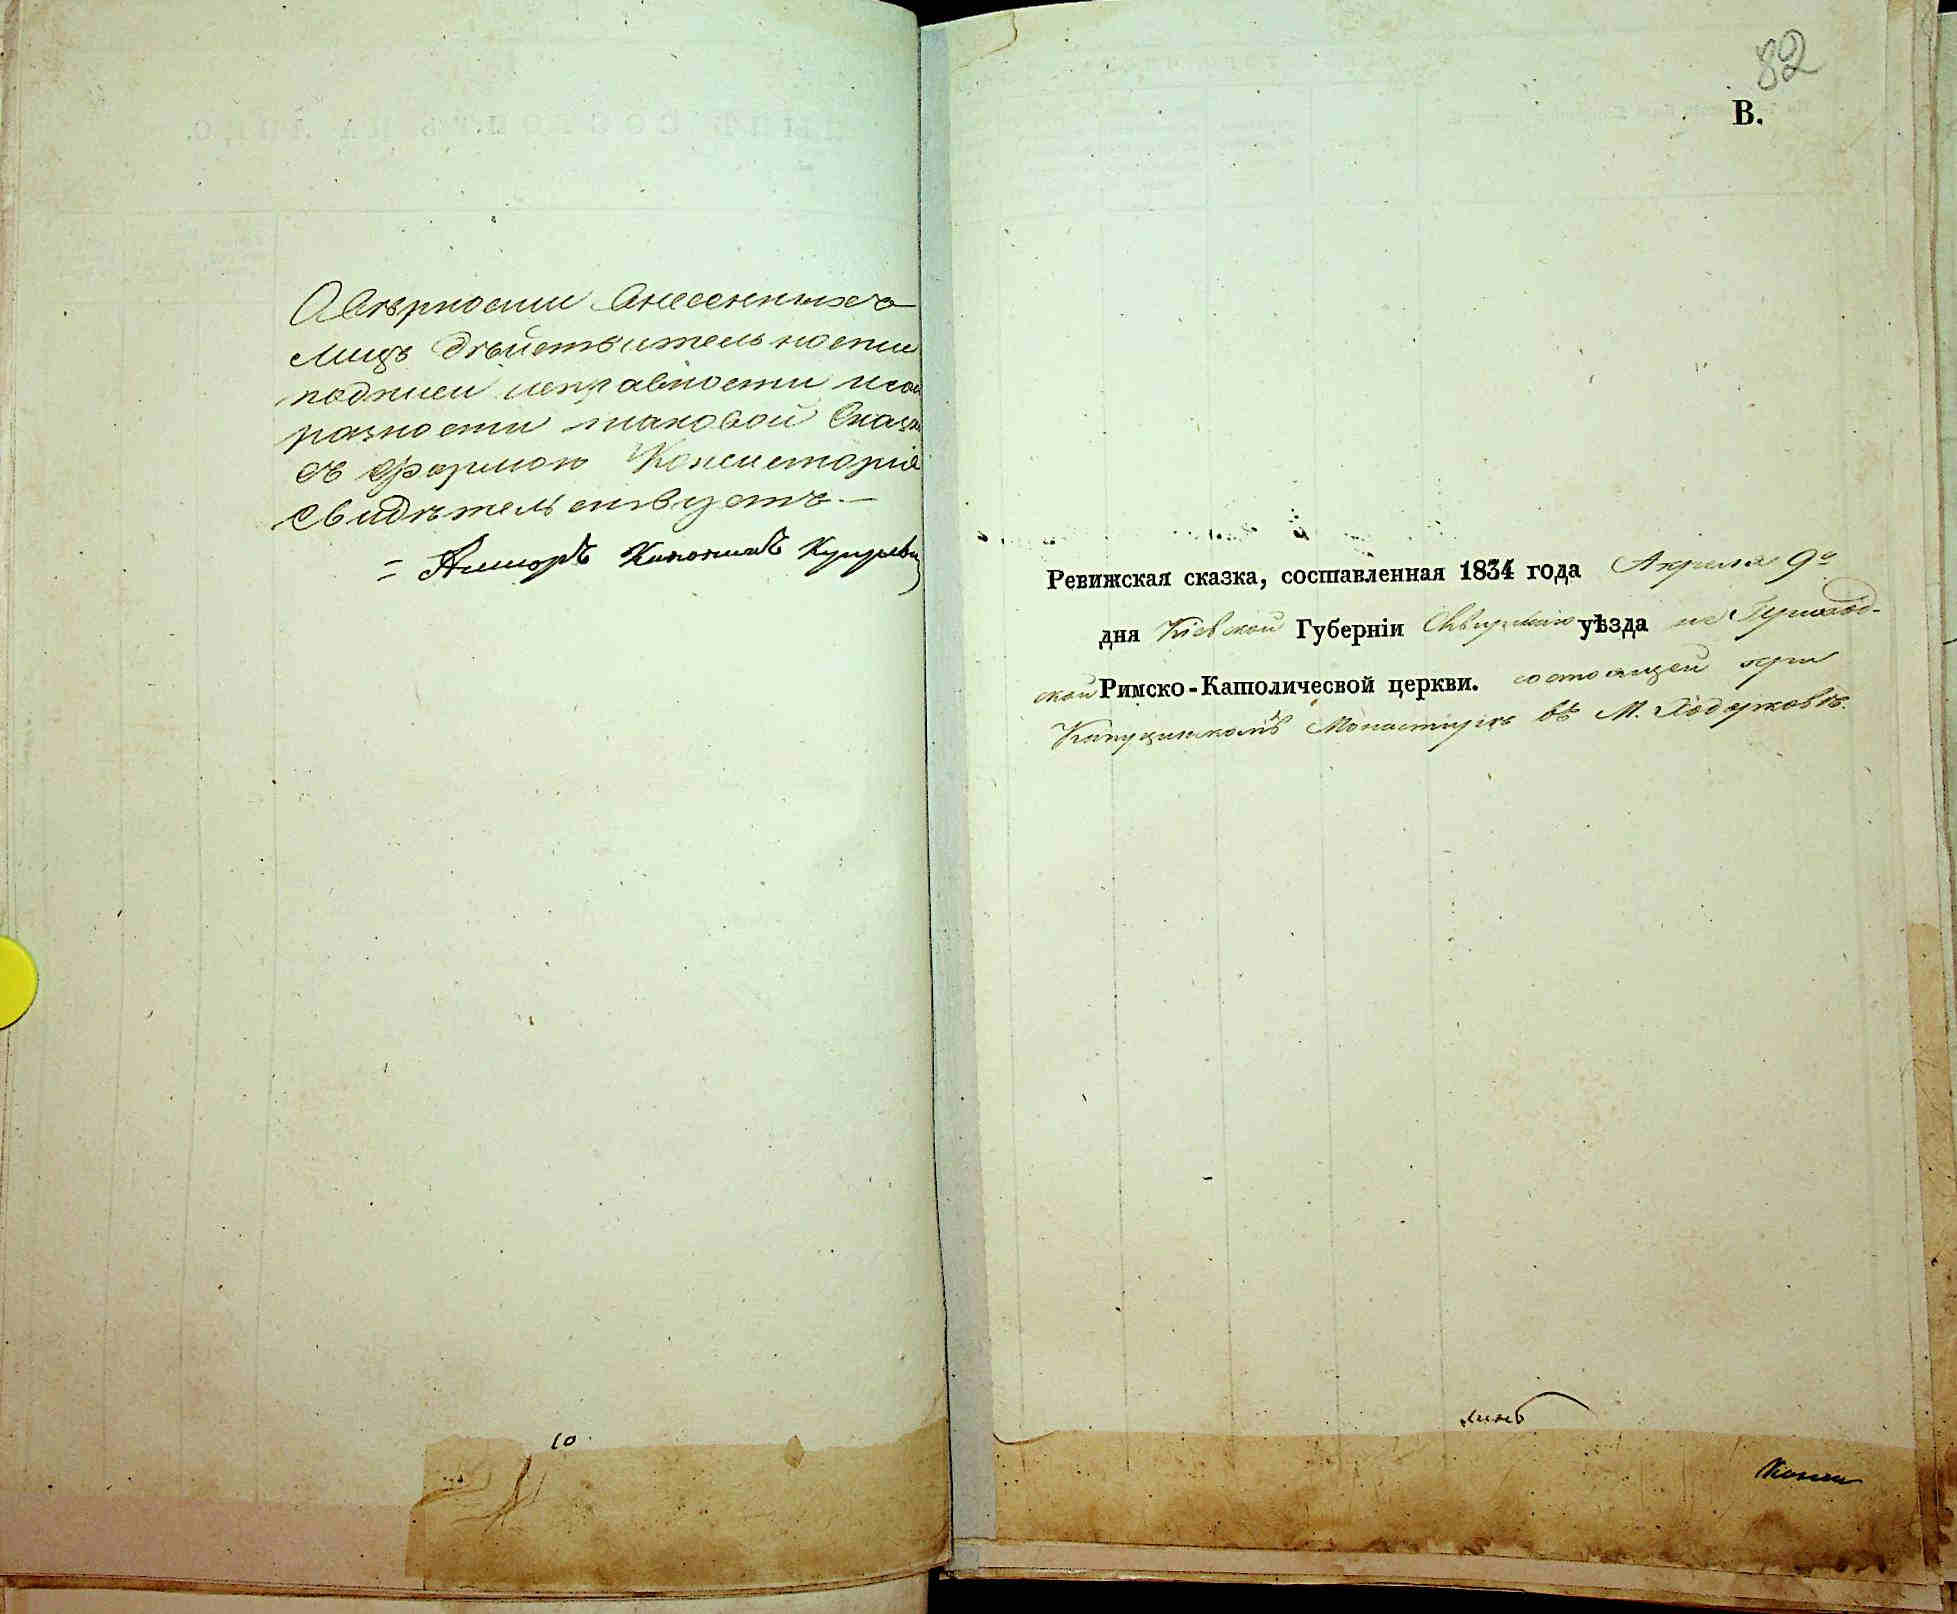 О вѣрности внесенныхъ
лицъ дѣйствительности
подписи исправности и соо
разности таковой Сказк
съ формою Консисторія
свидѣтельствуетъ.—
Асессоръ Каноникъ
10
82
В.
Ревижская сказка, составленная 1834 года Апреля 9го
дня Кіевской Губерніи Сквирскаго уѣзда не Приход-
ской Римско-Католичесвой церкви. состоящей при
Капуцинскомъ Монастырѣ въ М. Ходорковѣ.